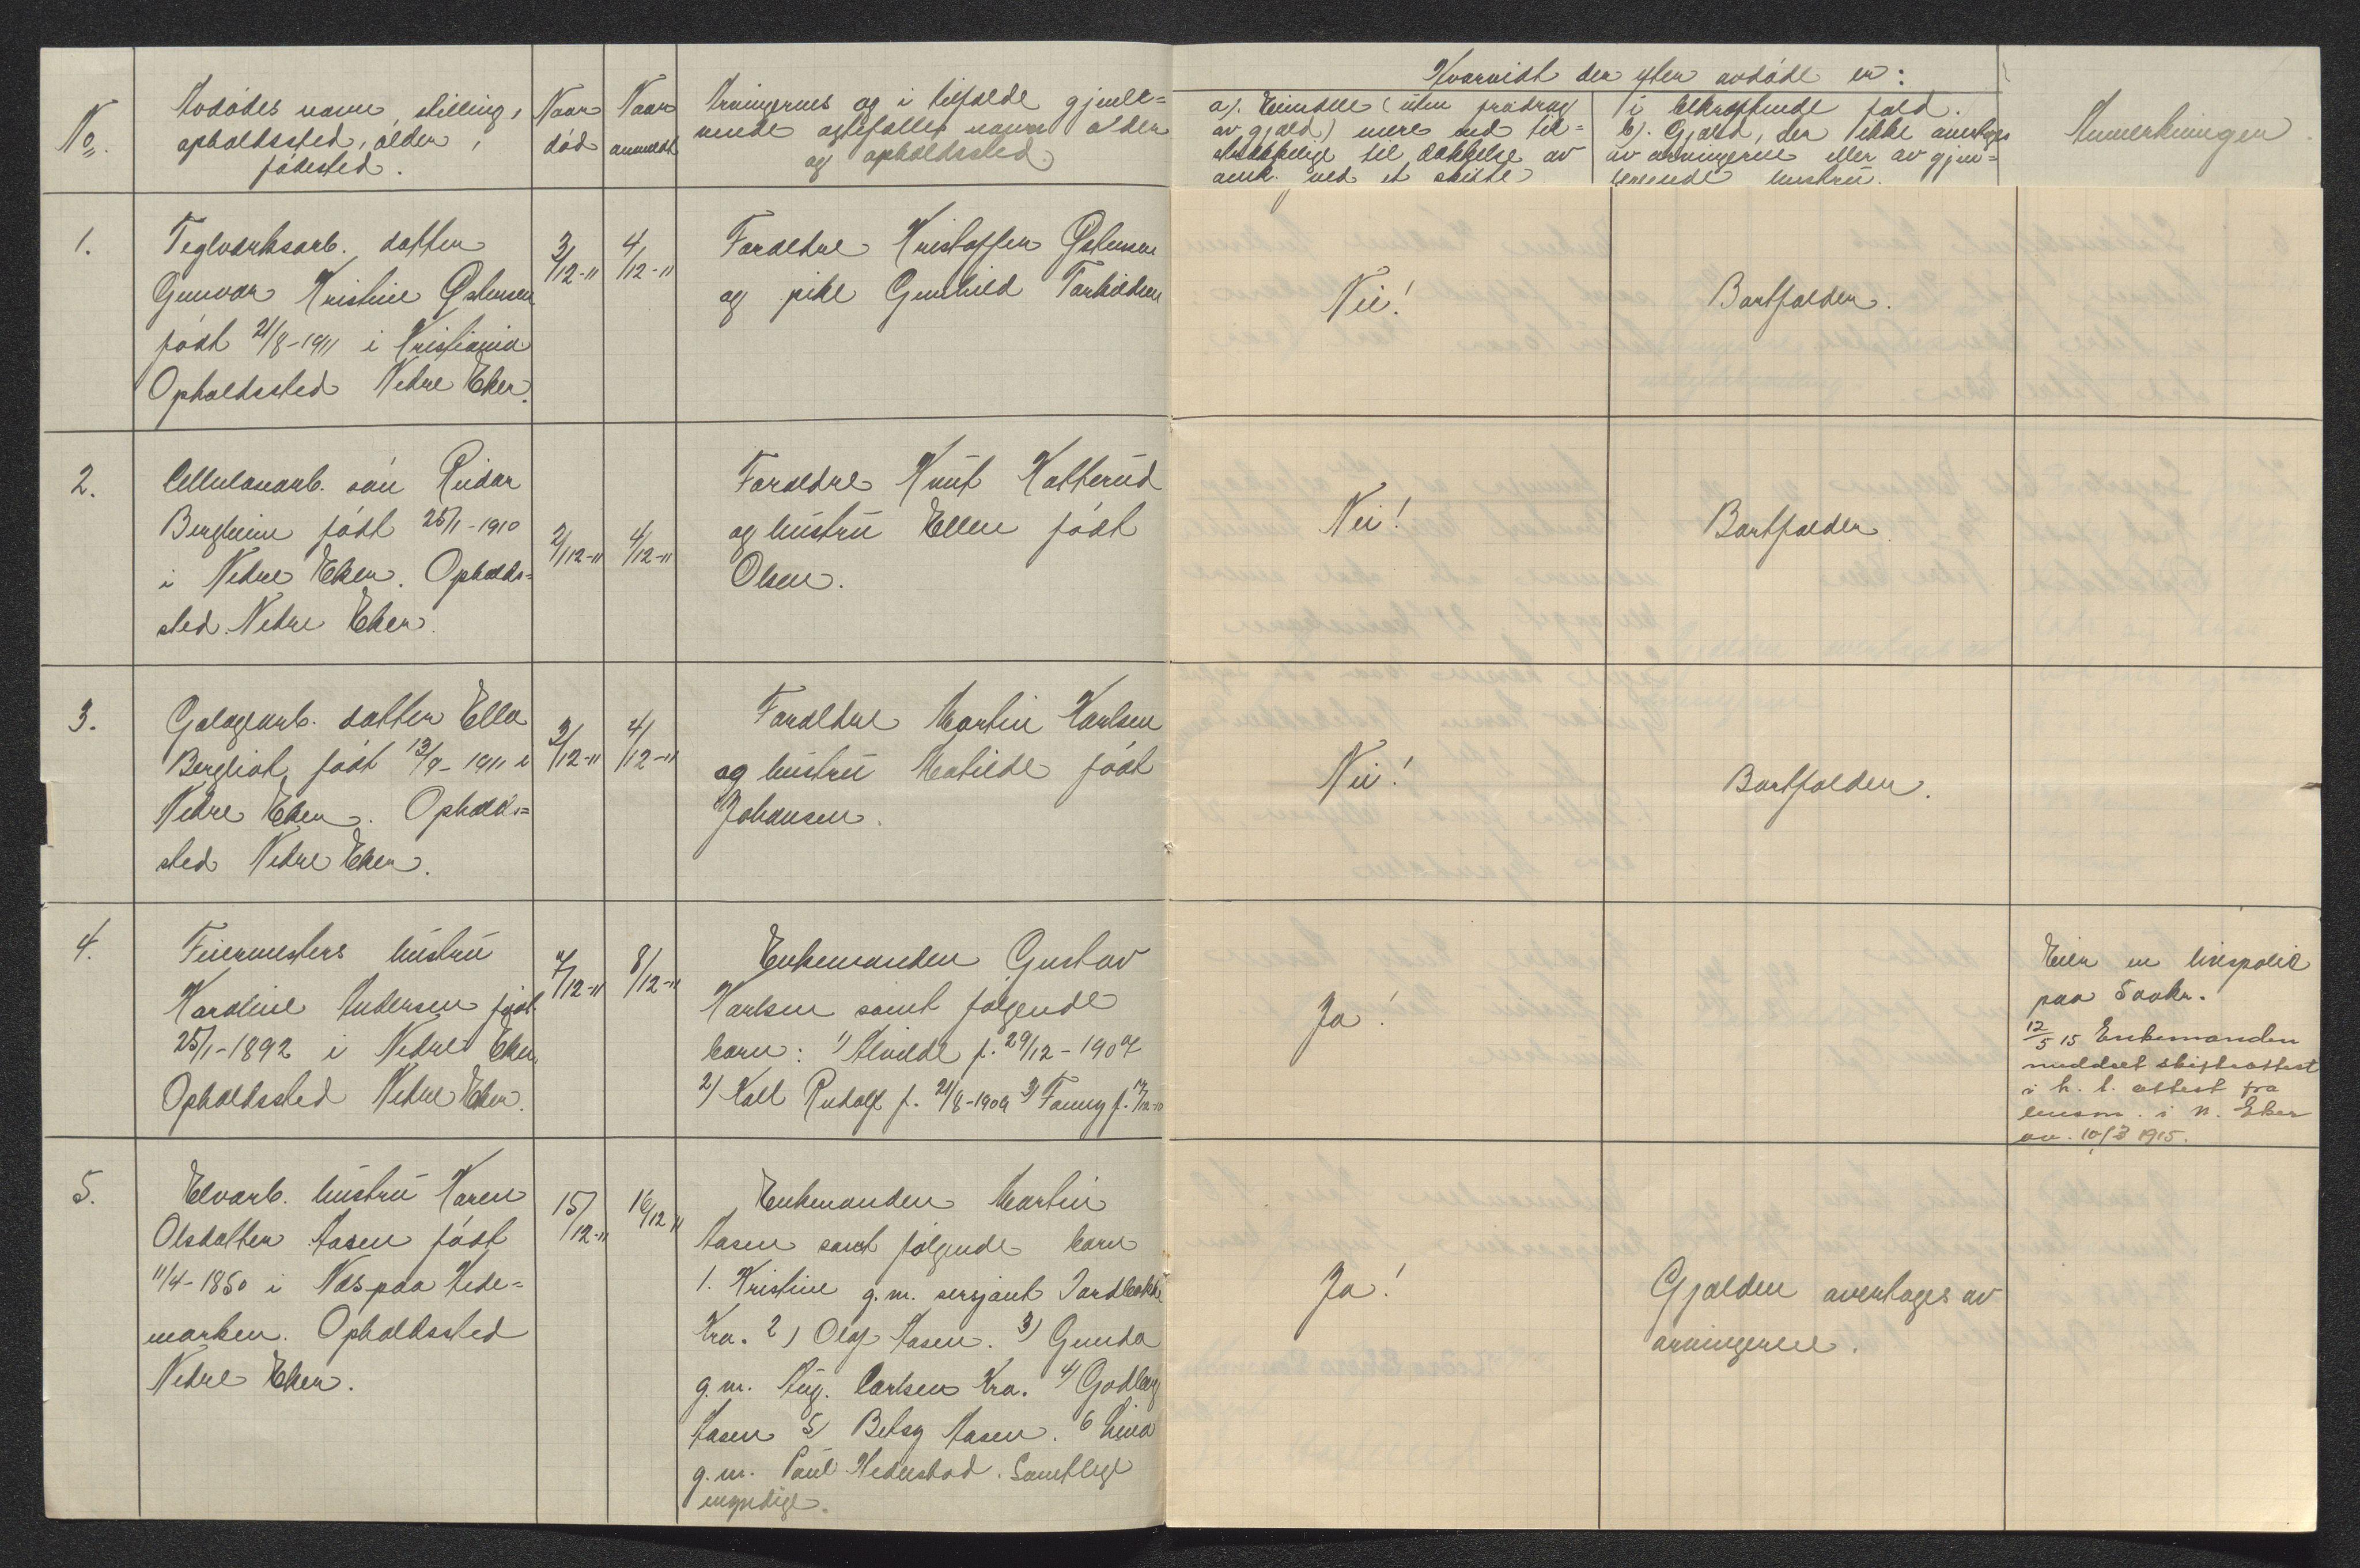 No.
Avdødes navn, stilling,
opholdssted, alder,
fødested.
Naar
død
Naar
anmeldt
Arvingernes og i tilfælde gjenle-
vende ægtefælles navn alder
og opholdssted.
Hvorvidt der efter avdøde er:
a). Eiendele (uten fradrag
av gjæld) mere end til-
strækkelige til dækkelse av
omk. ved et skifte
i bekræftende fald.
b). Gjæld, der ikke overtages
av arvingerne eller av gjen-
levende hustru.
Anmerkninger.
1.
Teglværksarb. datter
Gunvor Kristine Østensen
født 21/8-1911 i Kristiania
Opholdssted Nedre Eker.
3/12-11
4/12-11
Forældre Kristoffer Østensen
og pike Gunhild Torkildsen
Nei!
Bortfalder.
2.
Cellulosearb. søn Reidar
Bergheim født 25/1-1910
i Nedre Eker. Opholds=
sted Nedre Eker.
2/12-11
4/12-11
Forældre Knut Katterud
og hustru Ellen født
Olsen.
Nei!
Bortfalder
3.
datter Ella
Bergliot født 13/9-1911 i
Nedre Eker. Opholds=
sted Nedre Eker.
3/12-11
4/12-11
Forældre Martin Karlsen
og hustru Matilde født
Johansen.
Nei!
Bortfalder.
4.
Feiermesters hustru
Karoline Andersen født
25/1-1892 i Nedre Eker
Opholdssted Nedre Eker.
7/12-11
8/12-11
Enkemanden Gustav
Karlsen samt følgende
barn: 1) Alvilde f. 29/12-1907
2) Kall Rudolf f. 21/8-1909 3) Fanny f.
Ja!
Eier en livspolice
paa 500 kr.
12/5 15 Enkemanden
meddelt skifteattest
i h. t. attest fra
lensm. i N. Eker
av. 10/3 1915.
5.
Elvarb. hustru Karen
Olsdatter Aasen født
11/4-1850 i Næs paa Hede=
marken. Opholdssted
Nedre Eker.
15/12-11
16/12 11
Enkemanden Martin
Aasen samt følgende barn
1. Kristine g.m. sersjant
Kra. 2) Olaf Aasen. 3) Gunda
g.m. Aug. Carlsen Kra. 4)
Aasen 5) Betsy Aasen. 6
g.m. Paul Hedenstad. Samtlige
myndige.
Ja!
Gjælden overtages av
arvingerne.